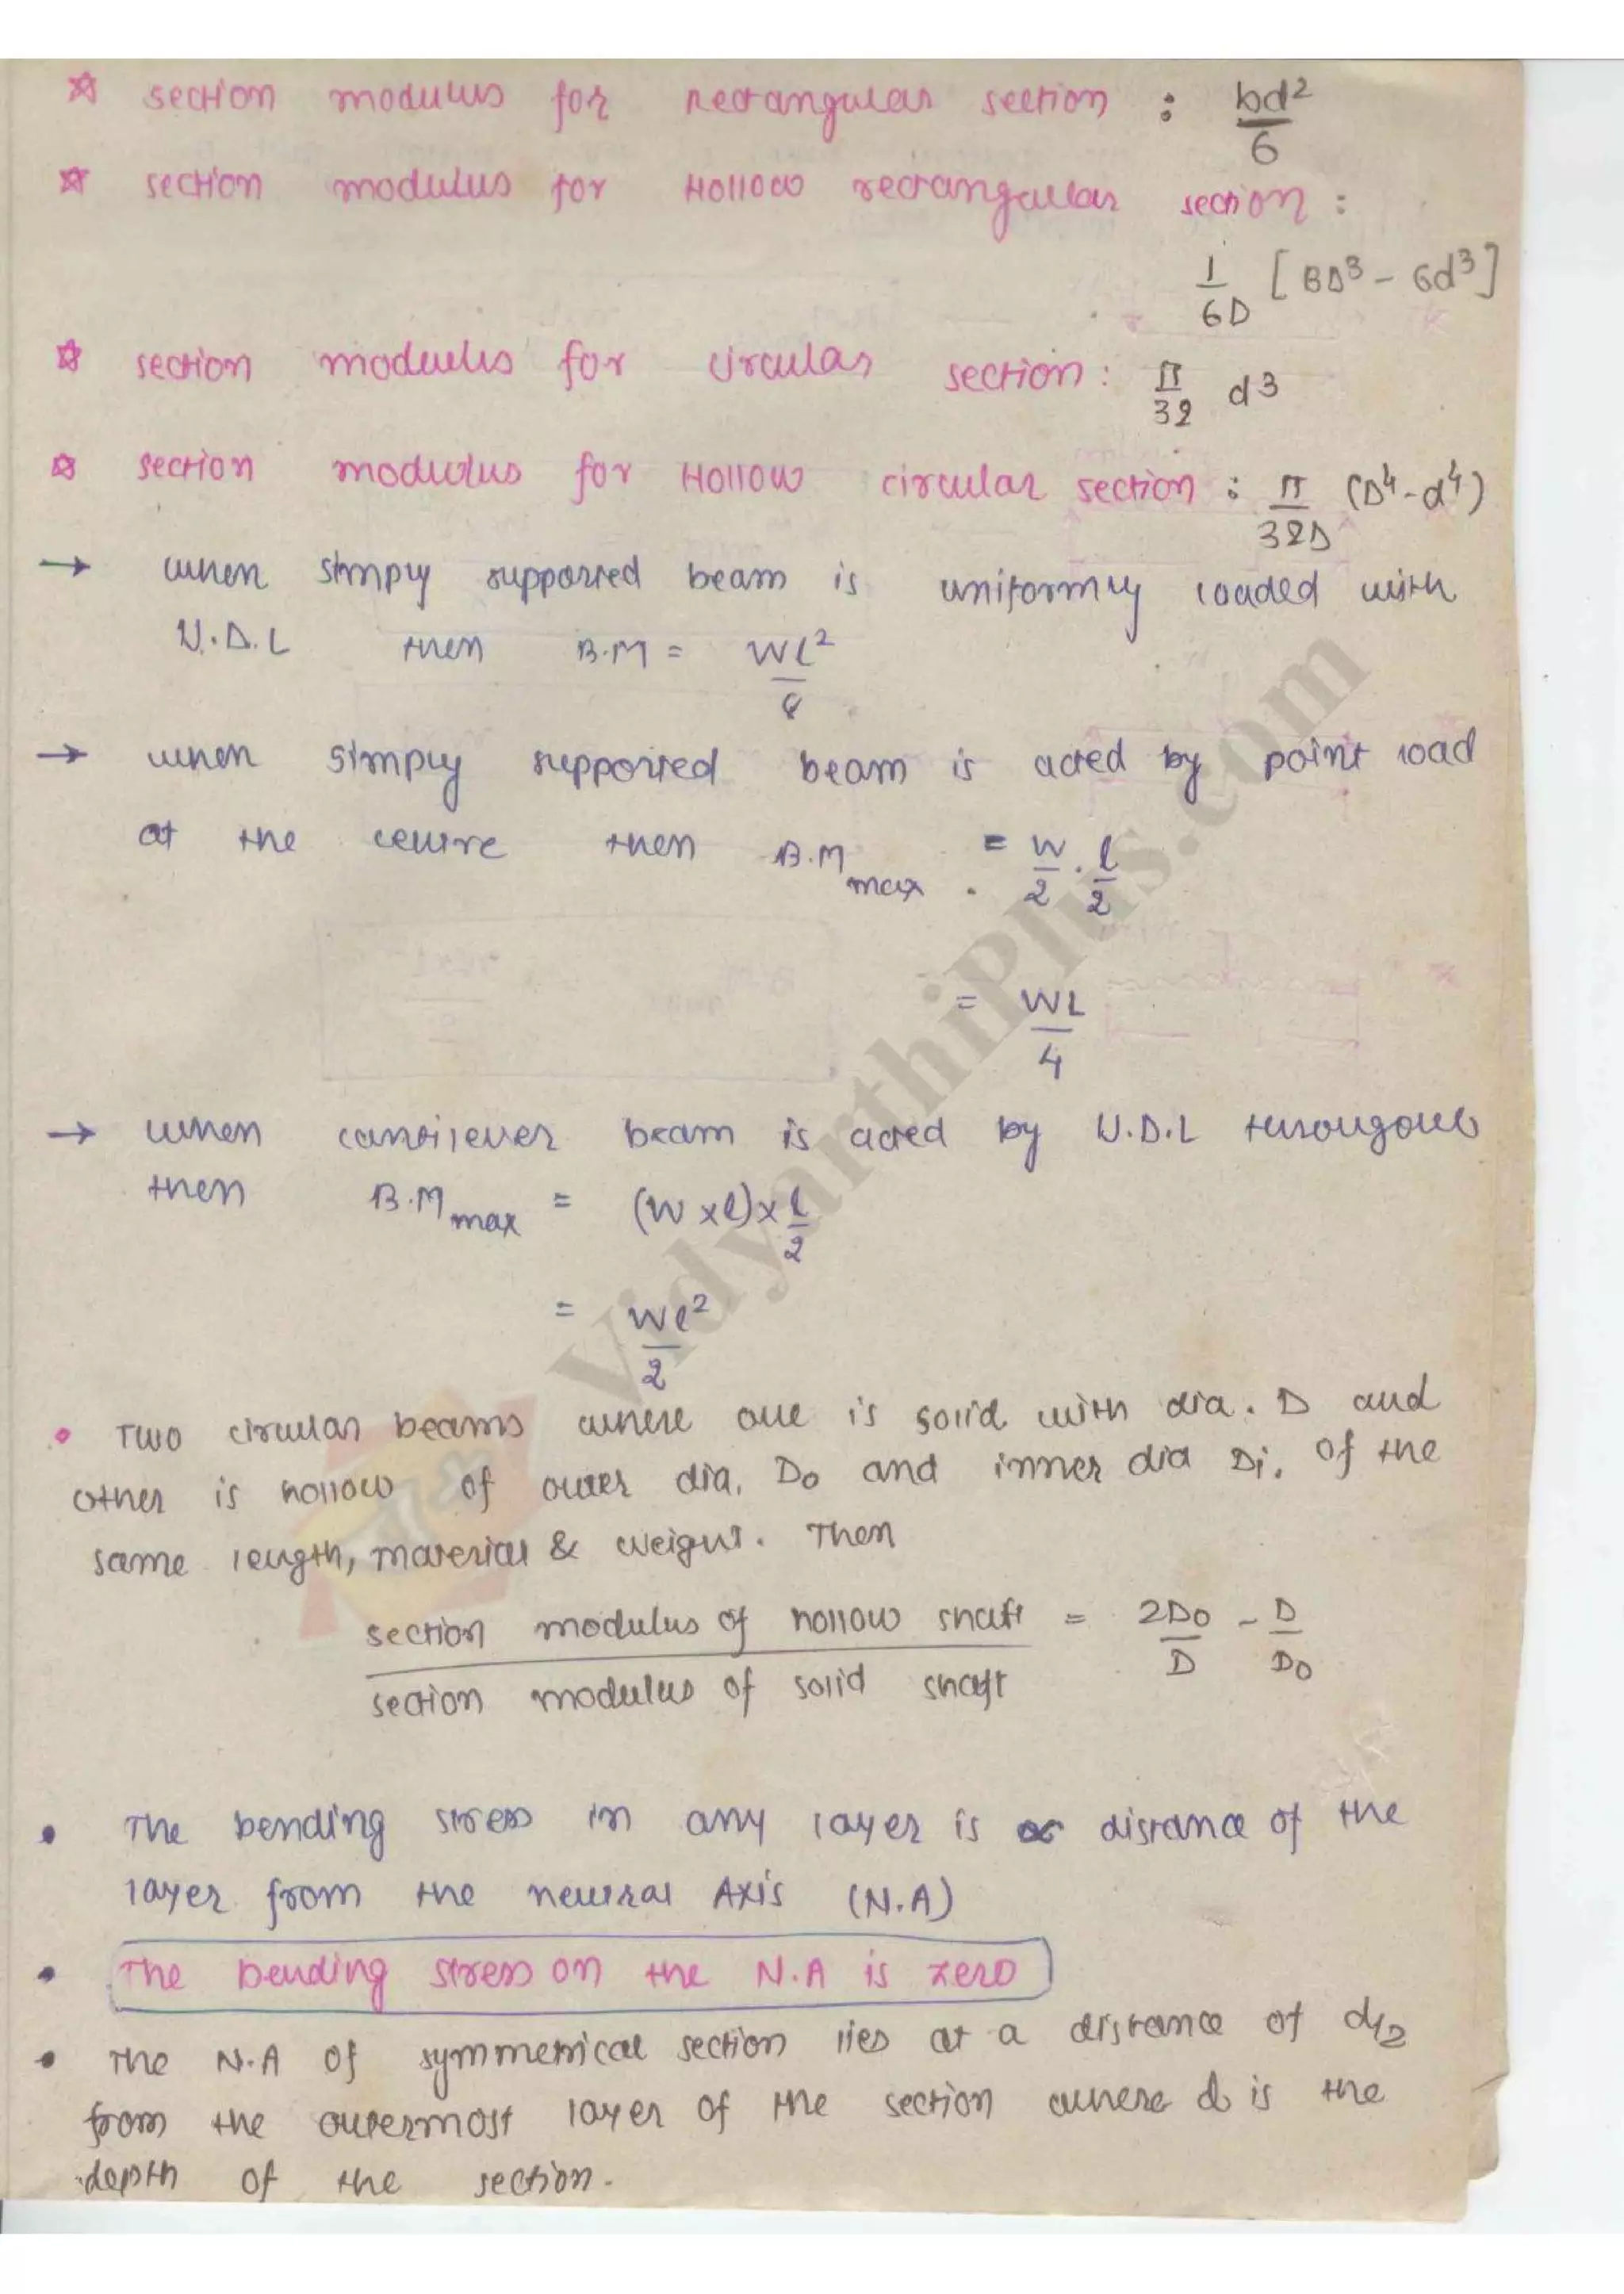 ☆ section modulus for rectangular section : bd²/6
☆ section modulus for Hollow rectangular section :
1/6D [BD³ - 6d³]
☆ section modulus for circular section : π/32 d³
☆ section modulus for Hollow circular section : π/32D (D⁴-d⁴)
→ when simply supported beam is uniformly loaded with
U.D.L then B.M = Wl²/8
→ when simply supported beam is acted by point load
at the centre then B.M max. = W/2 . l/2
= WL/4
→ when cantilever beam is acted by U.D.L througout
then B.M max = (W×l)×l/2
= Wl²/2
• Two circular beams where one is solid with dia. D and
other is hollow of outer dia. Do and inner dia Di. Of the
same length, material & weight. Then
section modulus of hollow shaft / section modulus of solid shaft = 2Do/D - D/Do
• The bending stress in any layer is ∝ distance of the
layer from the neutral Axis (N.A)
• The bending stress on the N.A is zero
• The N.A of symmetrical section lies at a distance of d/2
from the outermost layer of the section where d is the
depth of the section.
VidyarthiPlus.com